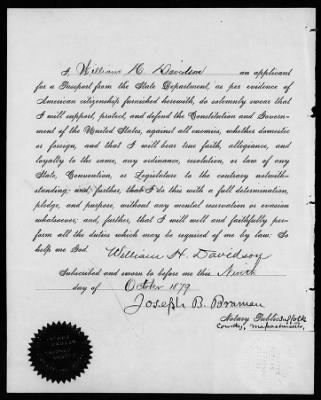 I, William H. Davidson an applicant
for a Passport from the State Department, as per evidence of
American citizenship furnished herewith, do solemnly swear that
I will support, protect, and defend the Constitution and Govern-
ment of the United States, against all enemies, whether domestic
or foreign, and that I will bear true faith, allegiance, and
loyalty to the same, any ordinance, resolution, or law of any
State, Convention, or Legislature to the contrary notwith-
standing: and, further, that I do this with a full determination,
pledge, and purpose, without any mental reservation or evasion
whatsoever; and, further, that I will well and faithfully per-
form all the duties which may be required of me by law: So
help me God.
William H. Davidson
Subscribed and sworn to before me this Ninth
day of October 1879
Joseph B. Braman
Notary Public Suffolk
County, Massachusetts.